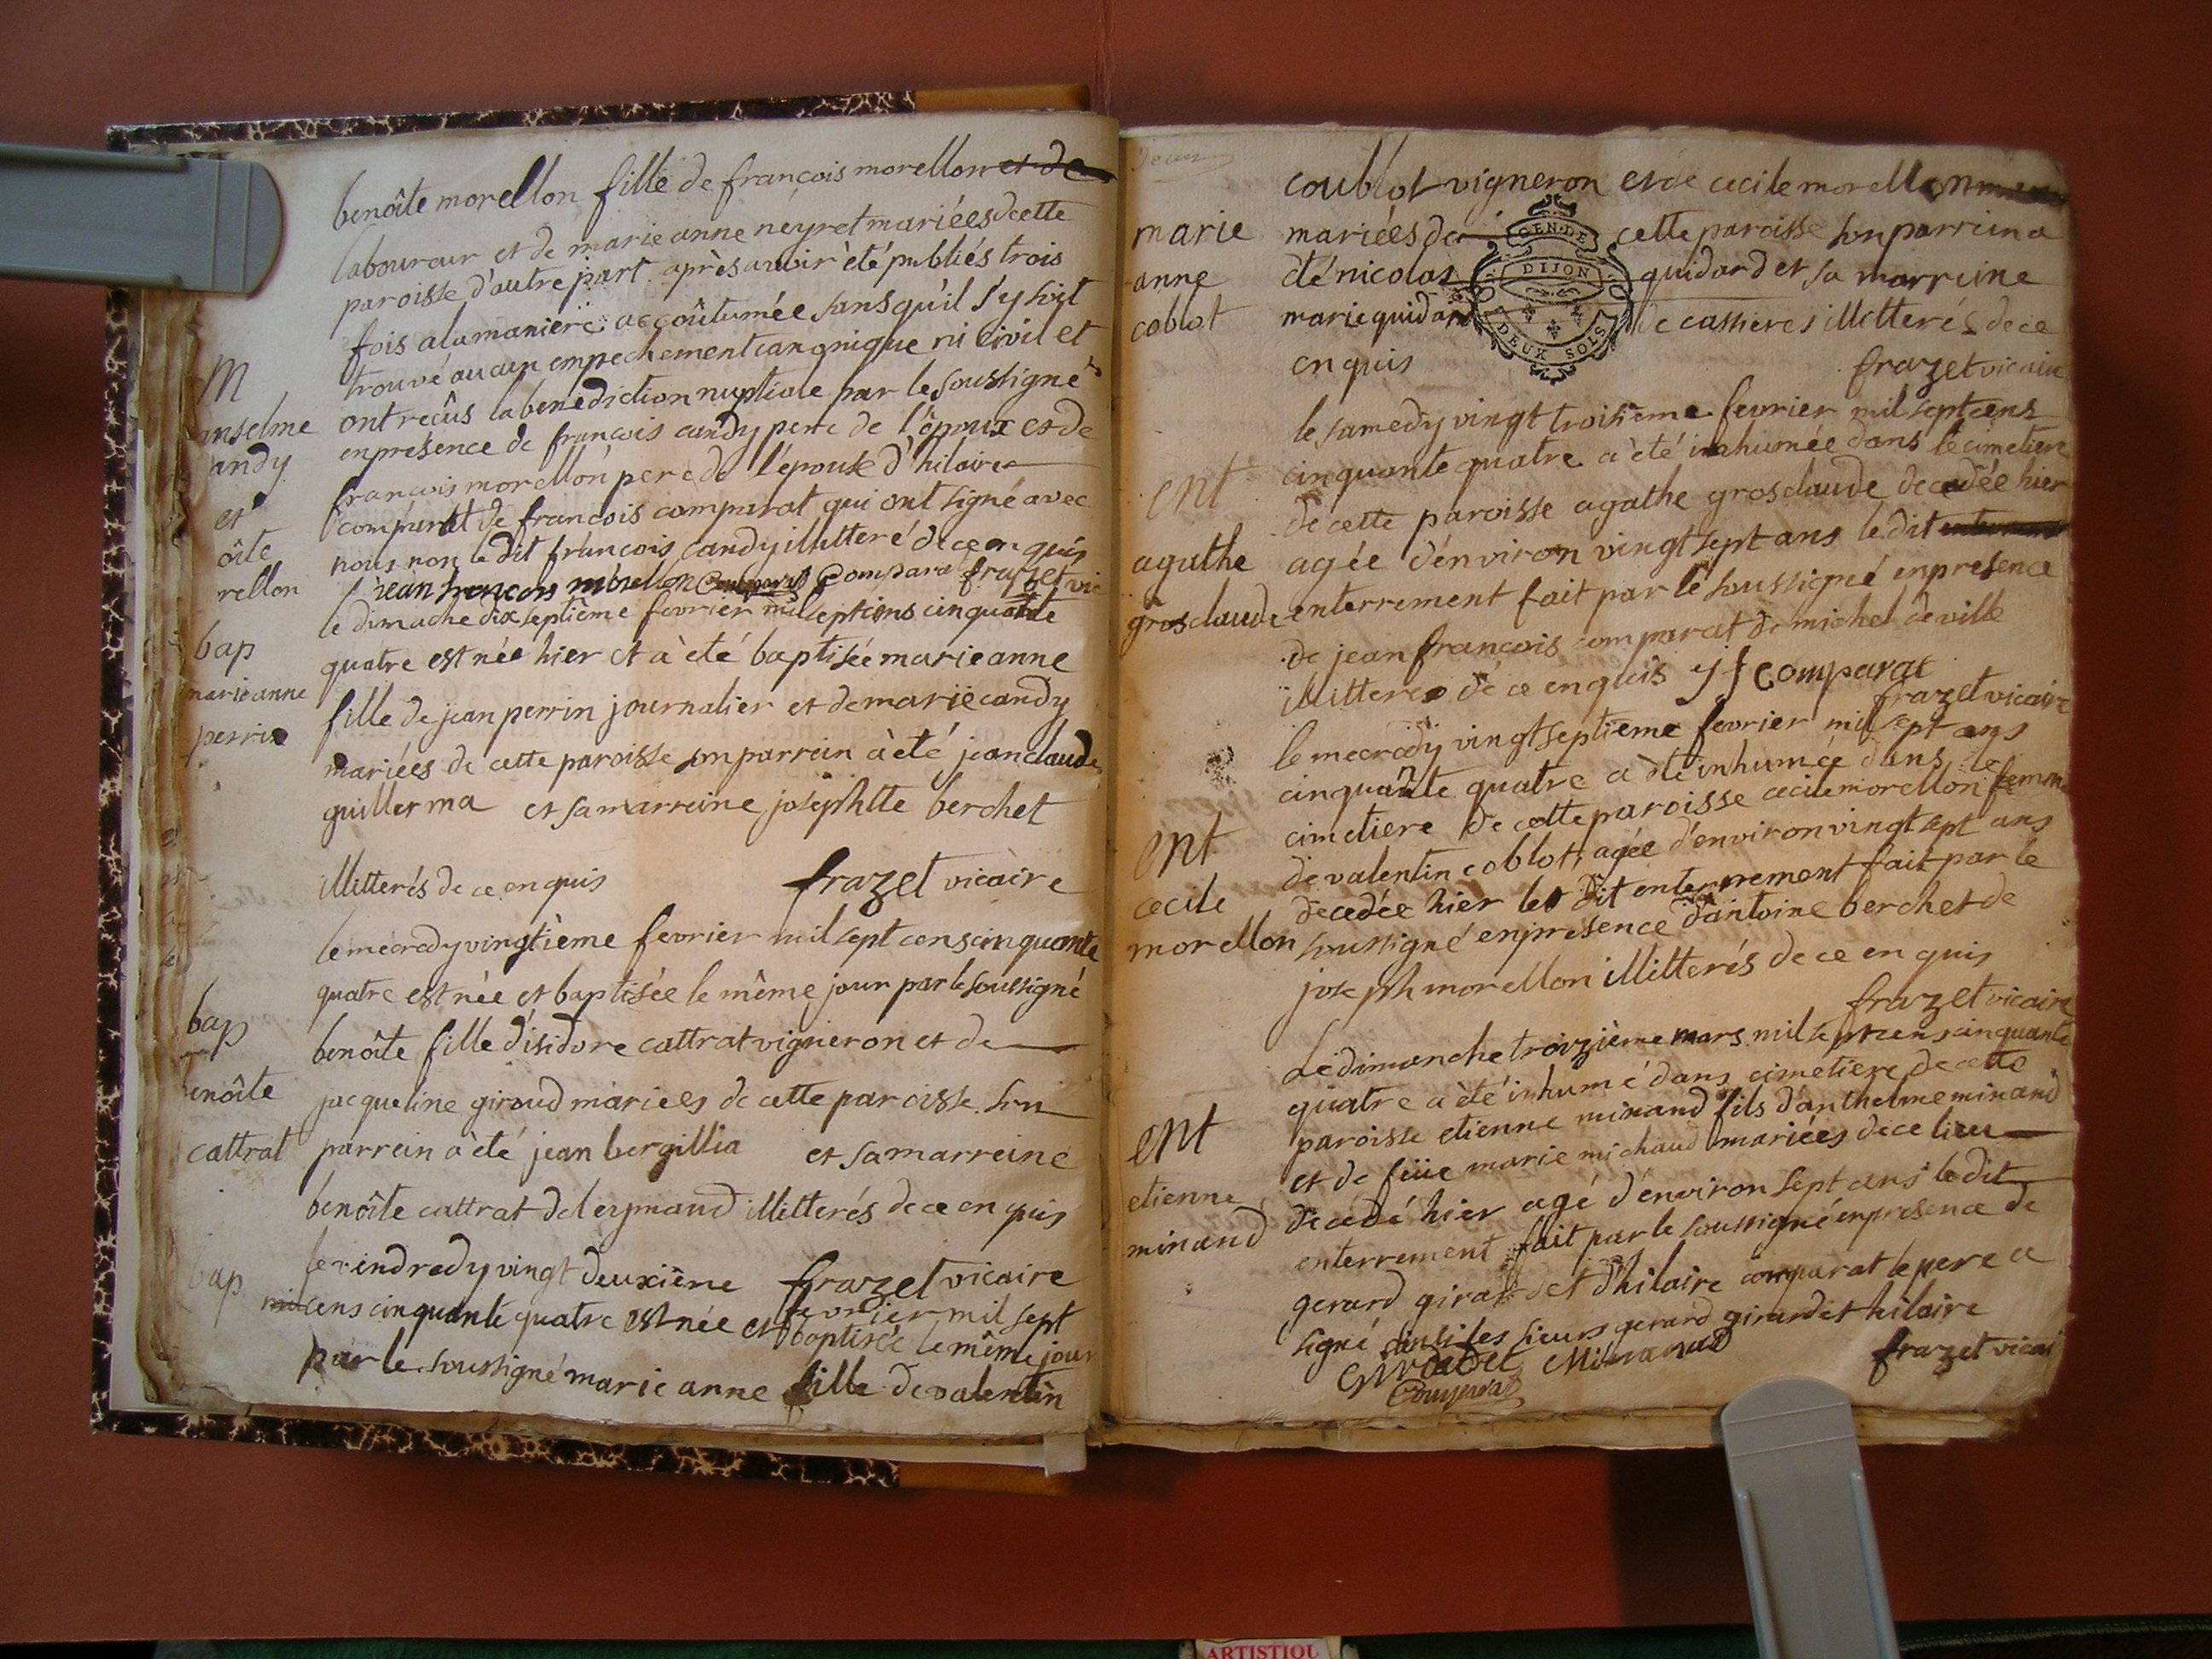 benoîte morellon fille de françois morellon et de
laboureur et de marie anne neyret mariées dcette
paroisse d'autre part après avoir èté publiés trois
fois ala maniere accoûtumée sans qu'il s'y soit
trouvé aucun empechement canonique ni civil et
M
ont reçûs la benediction nuptiale par le soussigné
anselme
en presence de françois candy pere de l'époux et de
andy
françois morellon pere de l'épouse d'hilaire
et
comparat de francois comparat qui ont signé avec
oîte
nous non le dit françois candy illitteré de ce enquis
rellon
jean francois morellon Comparat Comparat frazet vic
le dimache dix septième fevrier mil septcens cinquante
bap
quatre est née hier et à èté baptisée marie anne
marie anne
fille de jean perrin journalier et de marie candy
perrin
mariées de cette paroisse son parrein à èté jean claude
guillerma et sa marreine josephtte berchet
illitterés de ce enquis frazet vicaire
le mecredy vingtième fevrier mil sept cens cinquante
quatre est née et baptisée le même jour par le soussigné
bap
benoîte fille d'isidore cattrat vigneron et de
enoîte
jacqueline giroud mariées de cette paroisse son
cattrat
parrein à èté jean bergillia et sa marreine
benoîte cattrat de leymand illitterés de ce en quis
frazet vicaire
bap
le vendredy vingt deuxième fevrier mil sept
mil cens cinquante quatre est née et baptisée le même jour
par le soussigné marie anne fille de valentin
coublot vigneron et de cecile morellon
marie
mariées de cette paroisse son parrein a
GEN. DE
DIJON
DEUX SOLS
anne
èté nicolas guidard et sa marreine
coblot
marie guidard de cassieres illitterés de ce
enquis
frazet vicaire
le samedy vingt troisième fevrier mil sept cens
cinquante quatre a èté inhumée dans le cimetiere
ent
de cette paroisse agathe grosclaude decedée hier
agathe
agée d'environ vingt sept ans le dit
grosclaude
enterrement fait par le soussigné en presence
de jean françois comparat de michel deville
illitteres de ce enquis jf comparat
frazet vicaire
le mecredy vingt septieme fevrier mil sept cens
cinquante quatre a èté inhumée dans le
cimetiere de cette paroisse cecile morellon femme
ent
de valentin coblot agée d'environ vingt sept ans
cecile
decedée hier le dit enterrement fait par le
morellon
soussigné en presence d'antoine berchet de
joseph morellon illitterés de ce en quis
frazet vicaire
Le dimanche troizième mars mil sept cens cinquante
quatre a èté inhumé dans cimetiere de cette
ent
paroisse etienne minand fils d'anthelme minand
et de feüe marie michaud mariées de ce lieu
etienne
decedé hier agé d'environ sept ans le dit
minand
enterrement fait par le soussigné en presence de
gerard girardet d'hilaire comparat le pere a
signé les sieurs gerard girardet hilaire
Girardet Minand
Comparat
frazet vicai
ARTISTIQU